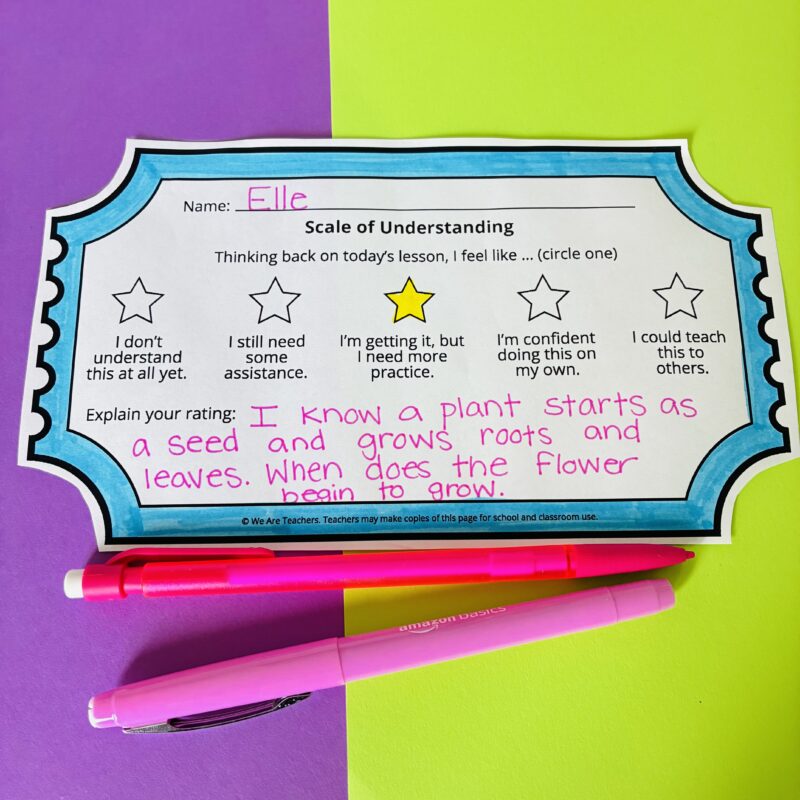 Name: Elle
Scale of Understanding
Thinking back on today's lesson, I feel like ... (circle one)
I don't
understand
this at all yet.
I still need
some
assistance.
I'm getting it, but
I need more
practice.
I'm confident
doing this on
my own.
I could teach
this to
others.
Explain your rating: I know a plant starts as
a seed and grows roots and
leaves. When does the flower
begin to grow.
© We Are Teachers. Teachers may make copies of this page for school and classroom use.
amazon basics